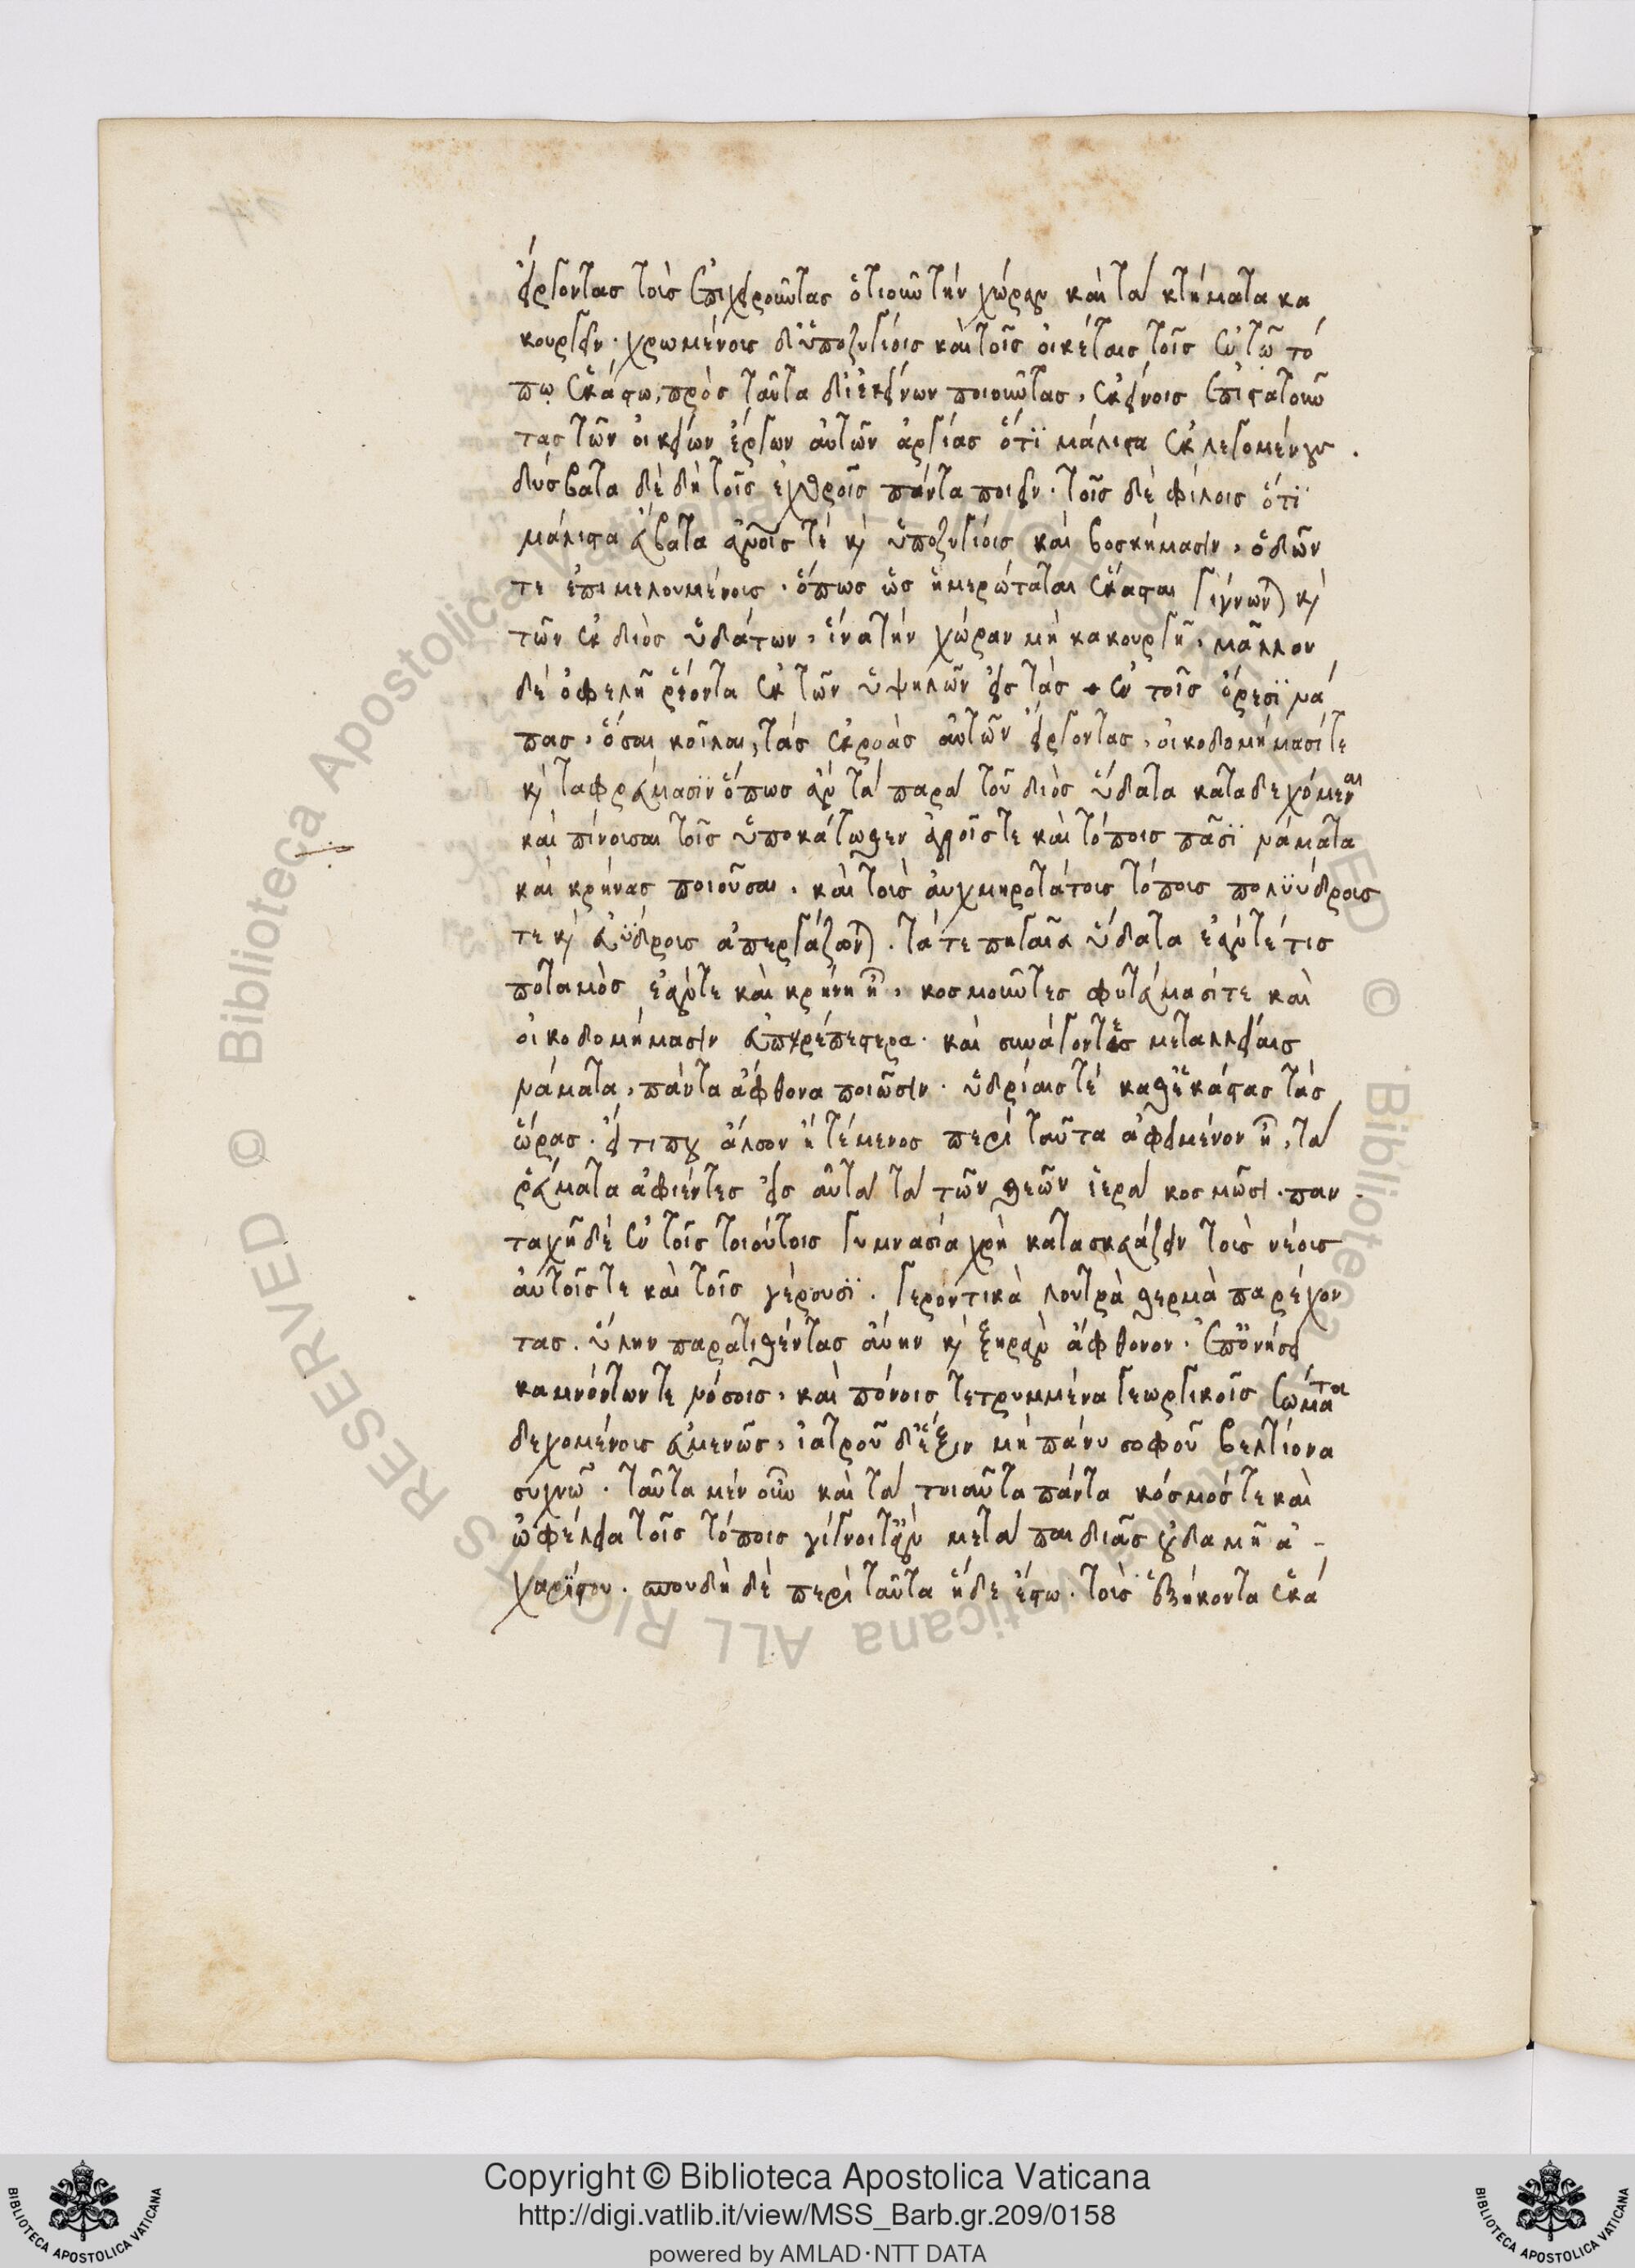 εἴργοντας τοὺς ἐπιχειροῦντας ὁτιοῦν τὴν χώραν καὶ τὰ κτήματα κα
κουργεῖν· χρωμένους δ' ὑποζυγίοις καὶ τοῖς οἰκέταις τοῖς ἐν τῷ τό
πῳ ἑκάστῳ, πρὸς ταῦτα δι' ἐκείνων ποιοῦντας, ἐκείνοις ἐπιστατοῦν
τας τῶν οἰκείων ἔργων αὐτῶν ἀργίας ὅτι μάλιστα ἐκλεγομένους.
δύσβατα δὲ δὴ τοῖς ἐχθροῖς πάντα ποιεῖν· τοῖς δὲ φίλοις ὅτι
μάλιστα εὔβατα ἀνοῖς τέ καὶ ὑποζυγίοις καὶ βοσκήμασιν, ὁδῶν
τε ἐπιμελουμένους, ὅπως ὡς ἡμερώταται ἕκασται γίγνων) καὶ
τῶν ἐκ διὸς ὑδάτων, ἵνα τὴν χώραν μὴ κακουργῇ, μᾶλλον
δὲ ὀφελῇ ῥέοντα ἐκ τῶν ὑψηλῶν εἰς τὰς ἐν τοῖς ὄρεσι νά
πας, ὅσαι κοῖλαι, τὰς ἐκροὰς αὐτῶν εἴργοντας, οἰκοδομήμασί τε
καὶ ταφρεύμασιν ὅπως ἂν τὰ παρὰ τοῦ διὸς ὕδατα καταδεχόμεναι
καὶ πίνουσαι τοῖς ὑποκάτωθεν ἀγροῖς τε καὶ τόποις πᾶσι νάματα
καὶ κρήνας ποιοῦσαι, καὶ τοὺς αὐχμηροτάτους τόπους πολυύδρους
τε καὶ εὐύδρους ἀπεργάζων). τά τε πηγαῖα ὕδατα ἐάν τέ τις
ποταμὸς ἐάν τε καὶ κρήνη ᾖ, κοσμοῦντες φυτεύμασί τε καὶ
οἰκοδομήμασιν εὐπρέπεστερα· καὶ συνάγοντες μεταλλείαις
νάματα, πάντα ἄφθονα ποιῶσιν· ὑδρίαις τέ καθ' ἑκάστας τὰς
ὥρας· εἴ τι που ἄλσον ἢ τέμενος περὶ ταῦτα ἀφειμένον ᾖ, τὰ
ῥεύματα ἀφιέντες εἰς αὐτὰ τὰ τῶν θεῶν ἱερὰ κοσμῶσι. παν
ταχῆ δὲ ἐν τοῖς τοιούτοις γυμνασία χρὴ κατασκευάζειν τοὺς νέους
αὐτοῖς τε καὶ τοῖς γέρουσι. γεροντικὰ λουτρὰ θερμὰ παρέχον
τας. ὕλην παρατιθέντας αὔην καὶ ξηρὰν ἄφθονον. ἐπ' ὀνήσει
καμνόντων τε νόσοις, καὶ πόνοις τετρυμμένα γεωργικοῖς σώματα
δεχομένους εὐμενῶς, ἰατροῦ δ' ἕξιν μὴ πάνυ σοφοῦ βελτίονα
συχνῷ. ταῦτα μὲν οὖν καὶ τὰ τοιαῦτα πάντα κόσμός τε καὶ
ὠφέλεια τοῖς τόποις γίγνοιτ' ἂν μετὰ παιδιᾶς οὐδαμῆ ἀ-
χαρίστου. σπουδὴ δὲ περὶ ταῦτα ἥδε ἔστω. τοὺς ἑξήκοντα ἑκά
Copyright © Biblioteca Apostolica Vaticana
http://digi.vatlib.it/view/MSS_Barb.gr.209/0158
powered by AMLAD·NTT DATA